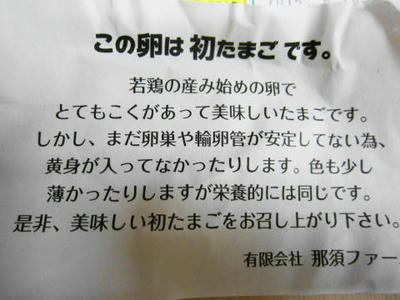 この卵は 初たまご です。
若鶏の産み始めの卵で
とてもこくがあって美味しいたまごです。
しかし、まだ卵巣や輪卵管が安定してない為、
黄身が入ってなかったりします。色も少し
薄かったりしますが栄養的には同じです。
是非、美味しい初たまごをお召し上がり下さい。
有限会社 那須ファー